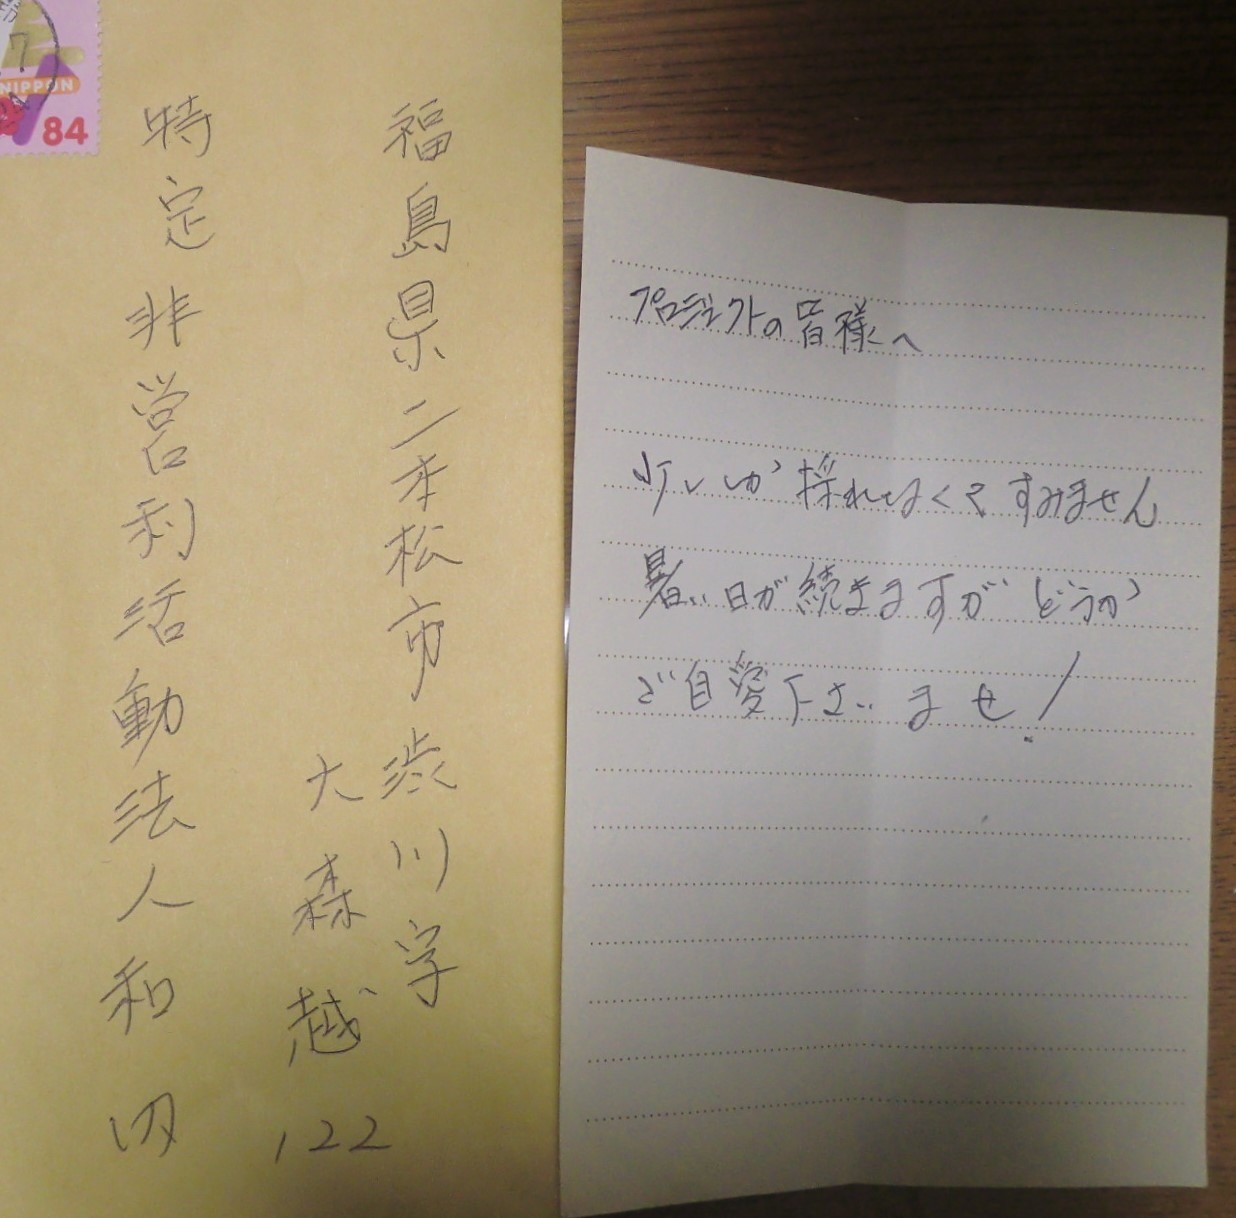 NIPPON
84
福島県二本松市渋川字
大森越122
特定非営利活動法人和
プロジェクトの皆様へ
少ししか採れなくてすみません
暑い日が続きますがどうか
ご自愛下さいませ!